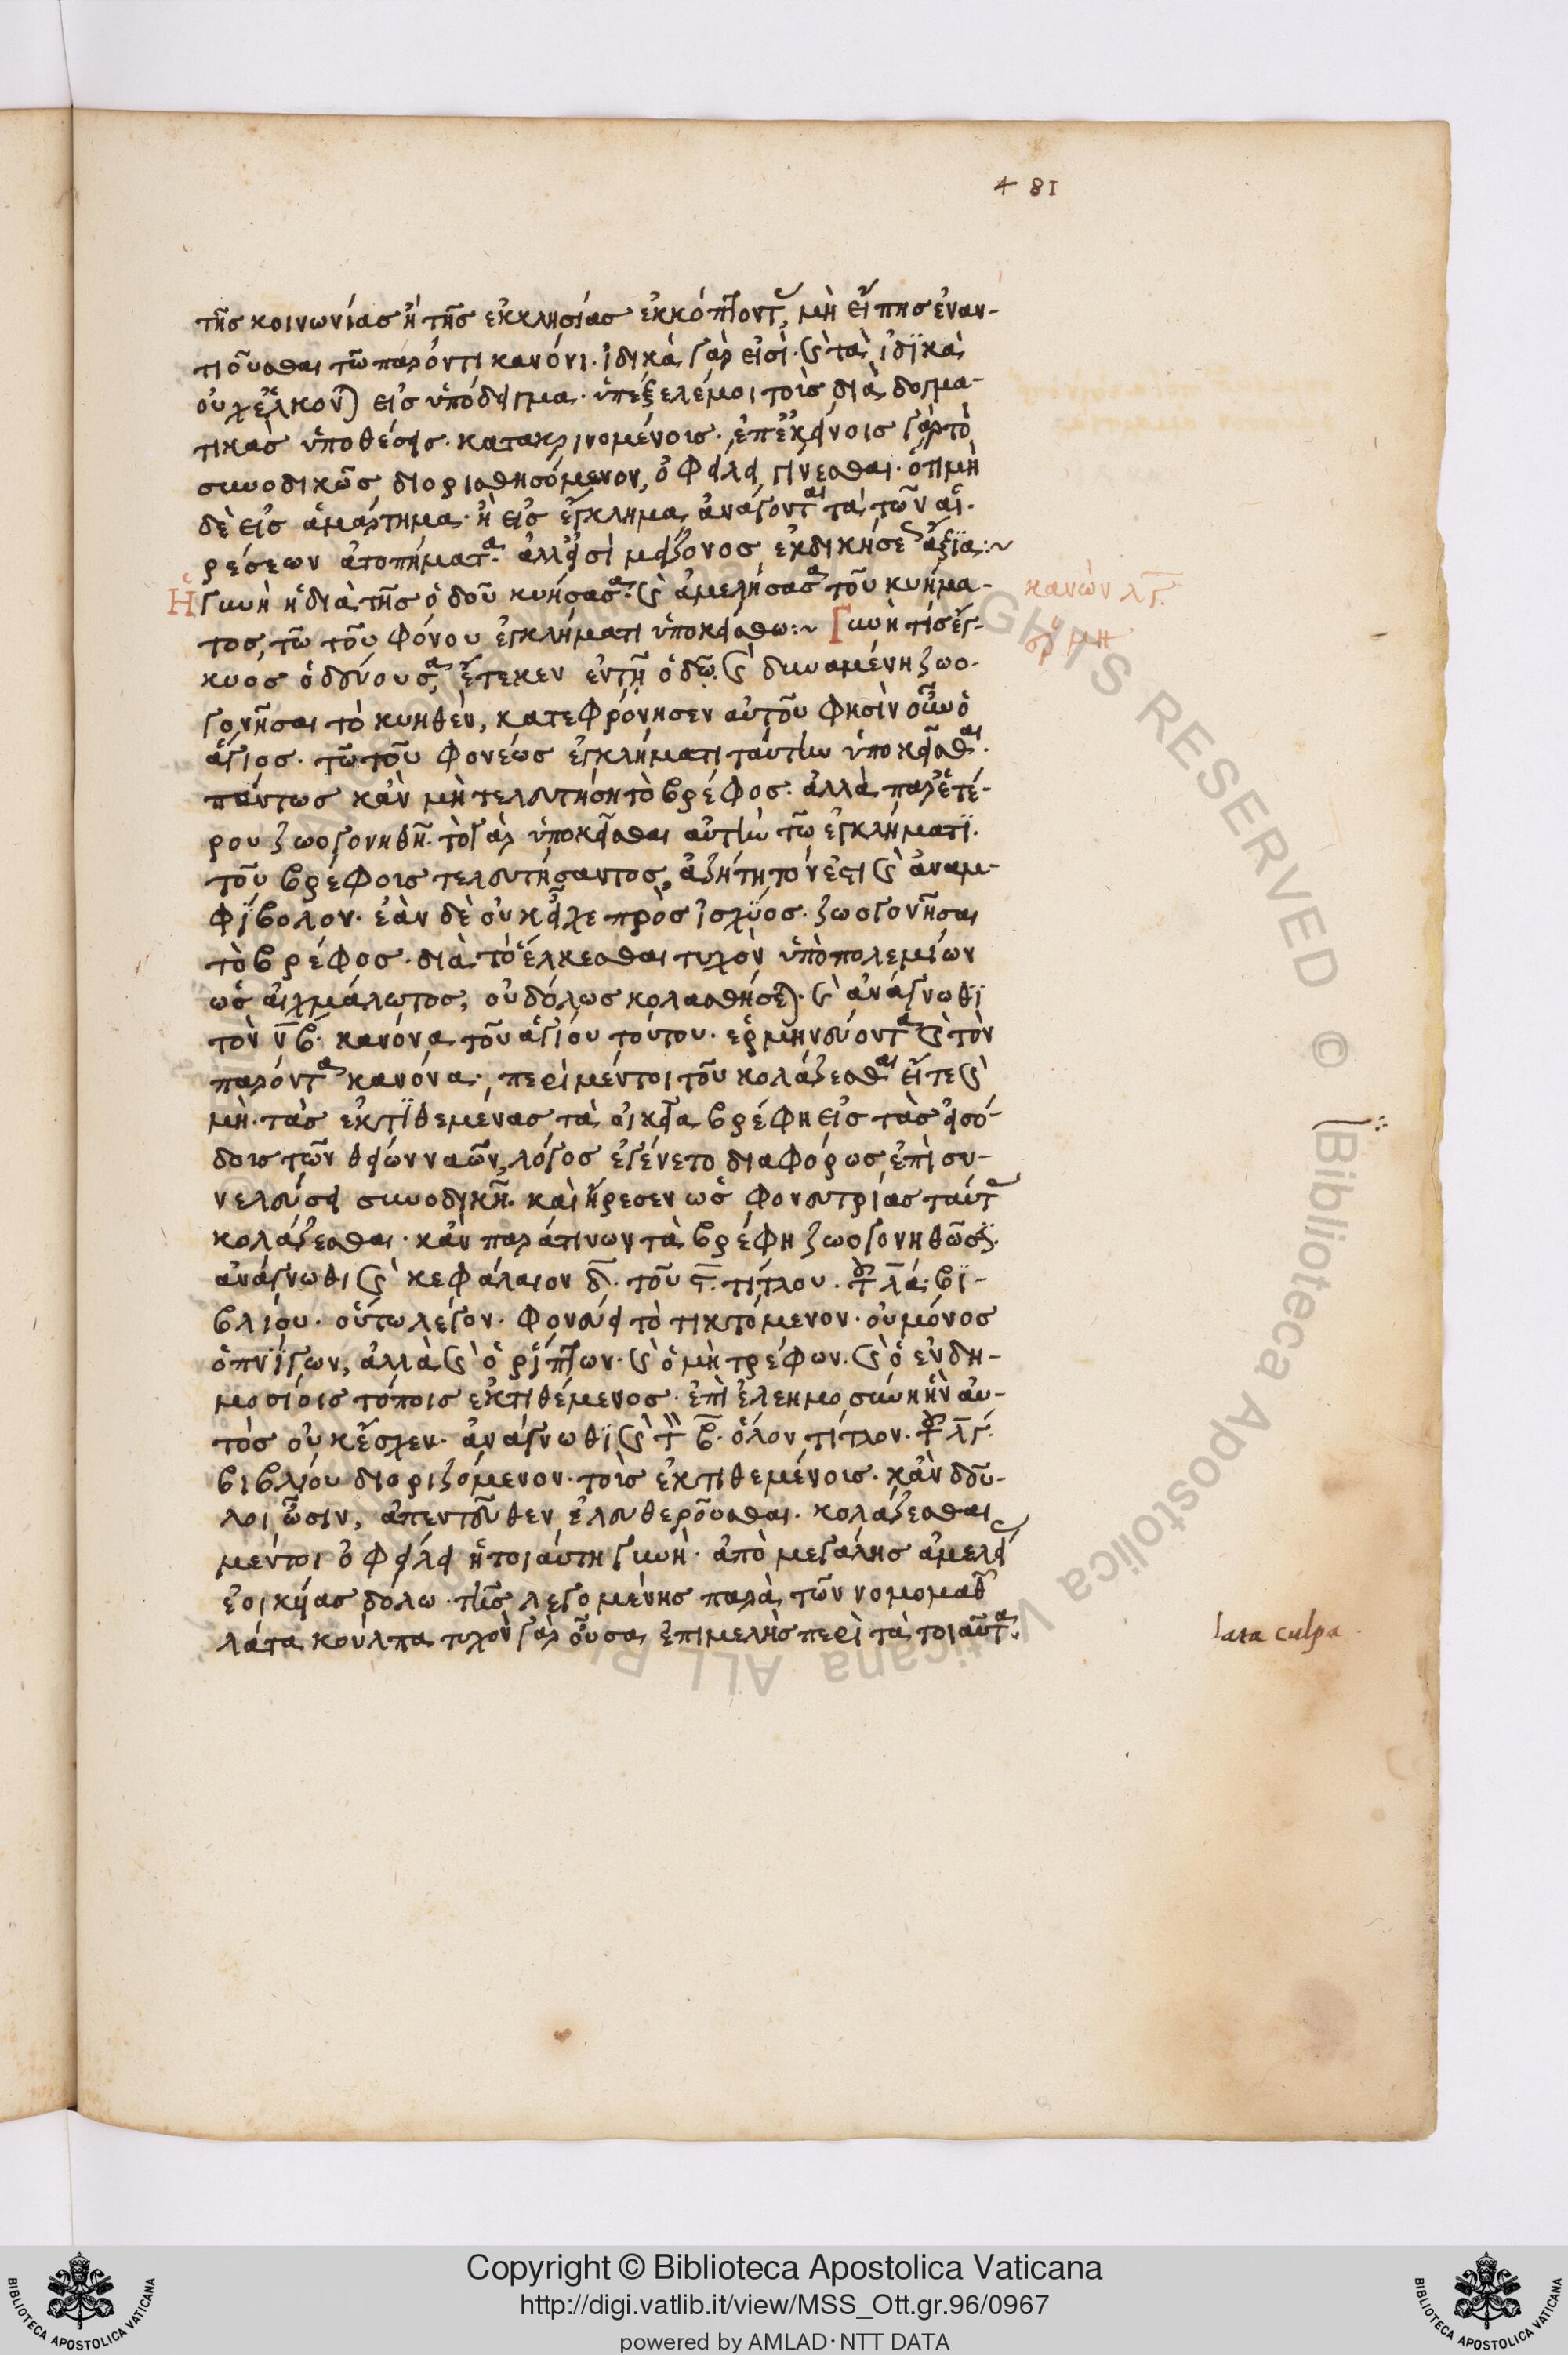 4 81
τῆς κοινωνίας ἢ τῆς ἐκκλησίας ἐκκόπτοντ, μὴ εἴπης ἐναν-
τιοῦσθαι τῶ παρόντι κανόνι· ἰδικὰ γάρ εἰσὶ· ϛ τὰ ἰδϊκὰ
οὐχ ἕλκονται εἰς ὑπόδειγμα· ὑπεξελέ μοι τοὺς διὰ δογμα-
τικὰς ὑποθέσεις κατακρινομένους· ἐπ' ἐκείνοις γὰρ τὸ
συνοδικῶς διορισθησόμενον, ὀφείλει γίνεσθαι· ὅτι μὴ
δὲ εἰς ἁμάρτημα· ἢ εἰς ἔγκλημα ἀνάγονται τὰ τῶν αἱ-
ρέσεων ἀτοπήματα· ἀλλ' εἰσὶ μείζονος ἐκδικήσεως ἄξϊα:~
Ἡ γυνὴ ἡ διὰ τῆς ὁδοῦ κυήσασα· ϛ ἀμελήσασα τοῦ κυήμα-
κανὼν λγ.
τος, τῶ τοῦ φόνου ἐγκλήματι ὑποκείσθω:~ Γυνή τις ἔγ-
κυος ὁδεύουσα, ἔτεκεν ἐν τῇ ὁδῶ· ϛ δυναμένη ζωο-
γονῆσαι τὸ κυηθὲν, κατεφρόνησεν αὐτοῦ φησὶν οὖν ὁ
ἅγιος· τῶ τοῦ φονέως ἐγκλήματι ταύτην ὑποκεῖσθαι·
πάντως κἂν μὴ τελευτήση τὸ βρέφος· ἀλλὰ παρ' ἑτέ-
ρου ζωογονηθῆ· τὸ γὰρ ὑποκεῖσθαι αὐτὴν τῶ ἐγκλήματϊ·
τοῦ βρέφους τελευτήσαντος, ἀζήτητόν ἐστι ϛ ἀναμ-
φίβολον· ἐὰν δὲ οὐκ εἶχε πρὸς ἰσχύος ζωογονῆσαι
τὸ βρέφος· διὰ τὸ ἕλκεσθαι τυχὸν ὑπὸ πολεμίων
ὡς αἰχμάλωτος, οὐδόλως κολασθήσεται· ϛ ἀνάγνωθϊ
τὸν νβ. κανόνα τοῦ ἁγίου τούτου· ἑρμηνεύοντα ϛ τὸν
παρόντα κανόνα· περὶ μέντοι τοῦ κολάζεσθαι εἴτε ϛ
μὴ· τὰς ἐκτϊθεμένας τὰ οἰκεῖα βρέφη εἰς τὰς εἰσό-
δους τῶν θείων ναῶν, λόγος ἐγένετο διαφόρως ἐπὶ συ-
νελεύσει συνοδικῆ· καὶ ἤρεσεν ὡς φονευτρίας ταύτας
κολάζεσθαι· κἂν παρά τινων τὰ βρέφη ζωογονηθῶσϊ·
ἀνάγνωθι ϛ κεφάλαιον δ. τοῦ ϛ. τίτλου· τοῦ λα. βϊ-
βλίου· οὕτω λέγον· φονεύει τὸ τικτόμενον· οὐ μόνος
ὁ πνίγων, ἀλλὰ ϛ ὁ ῥίπτων· ϛ ὁ μὴ τρέφων· ϛ ὁ ἐν δη-
μοσίοις τόποις ἐκτιθέμενος· ἐπὶ ἐλεημοσύνη ἣν αὐ-
τὸς οὐκ ἔσχεν· ἀνάγνωθϊ ϛ τὸν β. ὅλον τίτλον· τοῦ λγ.
βιβλίου διοριζόμενον· τοὺς ἐκτιθεμένους· κἂν δοῦ-
λοι ὦσιν, ἀπεντεῦθεν ἐλευθεροῦσθαι· κολάζεσθαι
μέντοι ὀφείλει ἡ τοιαύτη γυνὴ· ἀπὸ μεγάλης ἀμελεί
ἐοικυίας δόλω· τῆς λεγομένης παρὰ τῶν νομομαθ
λάτα κούλπα τυχὸν γὰρ οὖσα ἐπιμελὴς περὶ τὰ τοιαῦτα
lata culpa
Copyright © Biblioteca Apostolica Vaticana
http://digi.vatlib.it/view/MSS_Ott.gr.96/0967
powered by AMLAD·NTT DATA
BIBLIOTECA APOSTOLICA VATICANA
BIBLIOTECA APOSTOLICA VATICANA